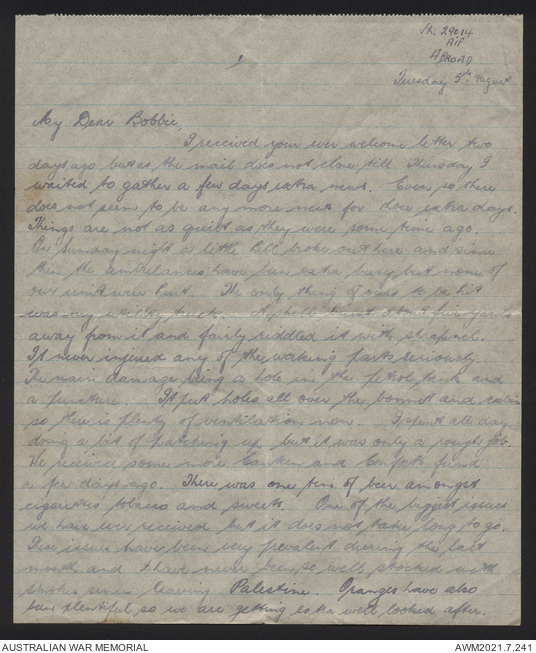 29014
AIF
ABROAD
Tuesday 5th August
My Dear Bobbie,
I received your ever welcome letter two
days ago but as the mail does not close till Thursday I
waited to gather a few days extra news. Even so there
does not seem to be any more news for those extra days.
Things are not as quiet as they were some time ago.
On Sunday night a little hell broke out here and since
then the ambulances have been extra busy but none of
our unit were hurt. The only thing of ours to be hit
was my utility truck. A shell burst about five yards
away from it and fairly riddled it with shrapnel.
It never injured any of the working parts seriously.
The main damage being a hole in the petrol tank and
a puncture. It put holes all over the bonnet and cabin
so there is plenty of ventilation now. I spent all day
doing a bit of patching up but it was only a rough job.
We received some more Canteen and Comforts fund
a few days ago. There was one tin of beer amongst
cigarettes tobacco and sweets. One of the biggest issues
we have ever received but it does not take long to go.
issues have been very prevalent during the last
month and I have never been so well stocked with
smokes since leaving Palestine. Oranges have also
been plentiful so we are getting extra well looked after.
AUSTRALIAN WAR MEMORIAL
AWM2021.7.241